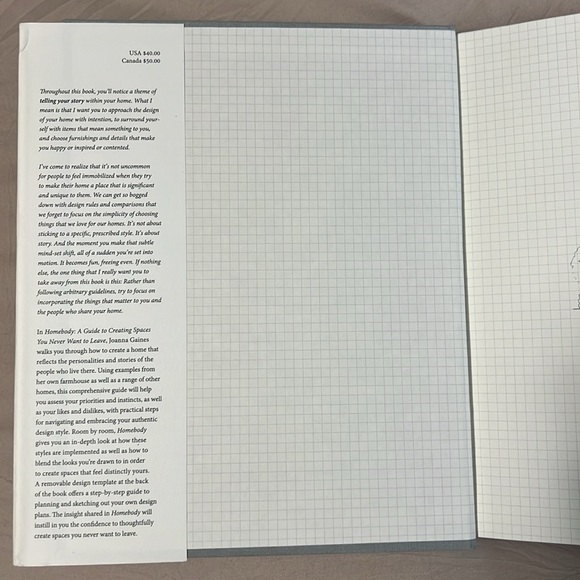 USA $40.00
Canada $50.00
Throughout this book, you'll notice a theme of
telling your story within your home. What I
mean is that I want you to approach the design
of your home with intention, to surround your-
self with items that mean something to you,
and choose furnishings and details that make
you happy or inspired or contented.
I've come to realize that it's not uncommon
for people to feel immobilized when they try
to make their home a place that is significant
and unique to them. We can get so bogged
down with design rules and comparisons that
we forget to focus on the simplicity of choosing
things that we love for our homes. It's not about
sticking to a specific, prescribed style. It's about
story. And the moment you make that subtle
mind-set shift, all of a sudden you're set into
motion. It becomes fun, freeing even. If nothing
else, the one thing that I really want you to
take away from this book is this: Rather than
following arbitrary guidelines, try to focus on
incorporating the things that matter to you and
the people who share your home.
In Homebody: A Guide to Creating Spaces
You Never Want to Leave, Joanna Gaines
walks you through how to create a home that
reflects the personalities and stories of the
people who live there. Using examples from
her own farmhouse as well as a range of other
homes, this comprehensive guide will help
you assess your priorities and instincts, as well
as your likes and dislikes, with practical steps
for navigating and embracing your authentic
design style. Room by room, Homebody
gives you an in-depth look at how these
styles are implemented as well as how to
blend the looks you're drawn to in order
to create spaces that feel distinctly yours.
A removable design template at the back
of the book offers a step-by-step guide to
planning and sketching out your own design
plans. The insight shared in Homebody will
instill in you the confidence to thoughtfully
create spaces you never want to leave.